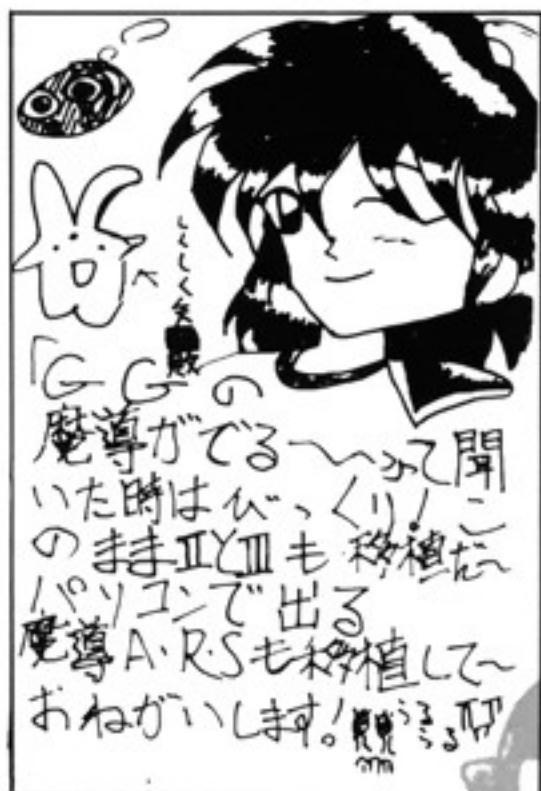 しくしく失敗
「GGの
魔導がでる〜〜って聞
いた時はびっくり!こ
のままⅡとⅢも移植だ〜
パソコンで出る
魔導A・R・Sも移植して〜
おねがいします!
うるうる